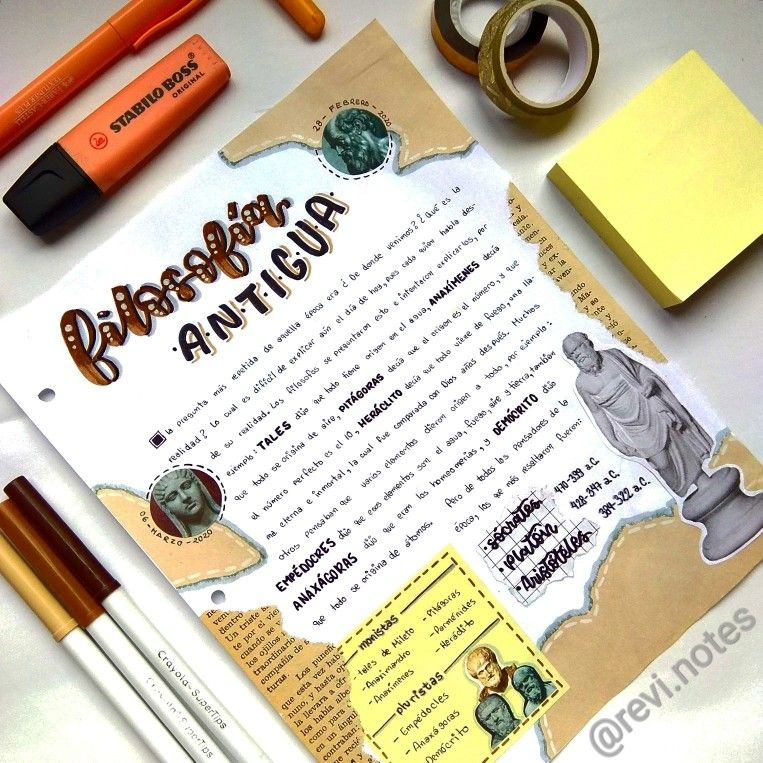 STABILO BOSS
ORIGINAL
28 - FEBRERO - 2020
filosofía
ANTIGUA
La pregunta más repetida de aquella época era ¿De donde venimos?? ¿Qué es la
realidad? Lo cual es difícil de explicar aún el día de hoy, pues cada quien habla des-
de su realidad. Los filósofos se preguntaron esto e intentaron explicarlos, por
ejemplo: TALES dijo que todo tiene origen en el agua, ANAXÍMENES decía
que todo se origina de aire, PITÁGORAS decía que el origen es el número, y que
el número perfecto es el 10, HERÁCLITO decía que todo viene de fuego, una lla-
ma eterna e inmortal, la cual fue comparada con Dios años después. Muchos
otros pensaban que varios elementos dieron origen a todo, por ejemplo:
EMPÉDORES dijo que esos elementos son el agua, fuego, aire y tierra, también
ANAXÁGORAS dijo que eran las homeomerias, y DEMÓCRITO dijo
que todo se origina de átomos. Pero de todos los pensadores de la
época, los que más resaltaron fueron:
06 - MARZO - 2020
·Sócrates 470-399 a.C.
·Platón 428-347 a.C.
·Aristóteles 384-322 a.C.
monistas
tales de Mileto
-Anaximandro
-Anaxímenes
-Pitágoras
-Parménides
-Heráclito
pluristas
-Empédocles
-Anaxágoras
Demócrito
Un triste
te por el vie
cuando se
los ojillos
traordinario
compañía de
Los puneñ
que esta vez hab
nino, y hasta op
la llevara a otr
los había alber
como para
en un ángu
contraban
Crayola SuperTips
Crayola SuperTips
@revi.notes